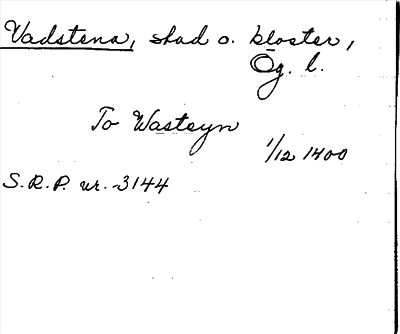 Vadstena, stad o. kloster,
Ög. l.
To Wasteyn
1/12 1400
S.R.P. nr. 3144